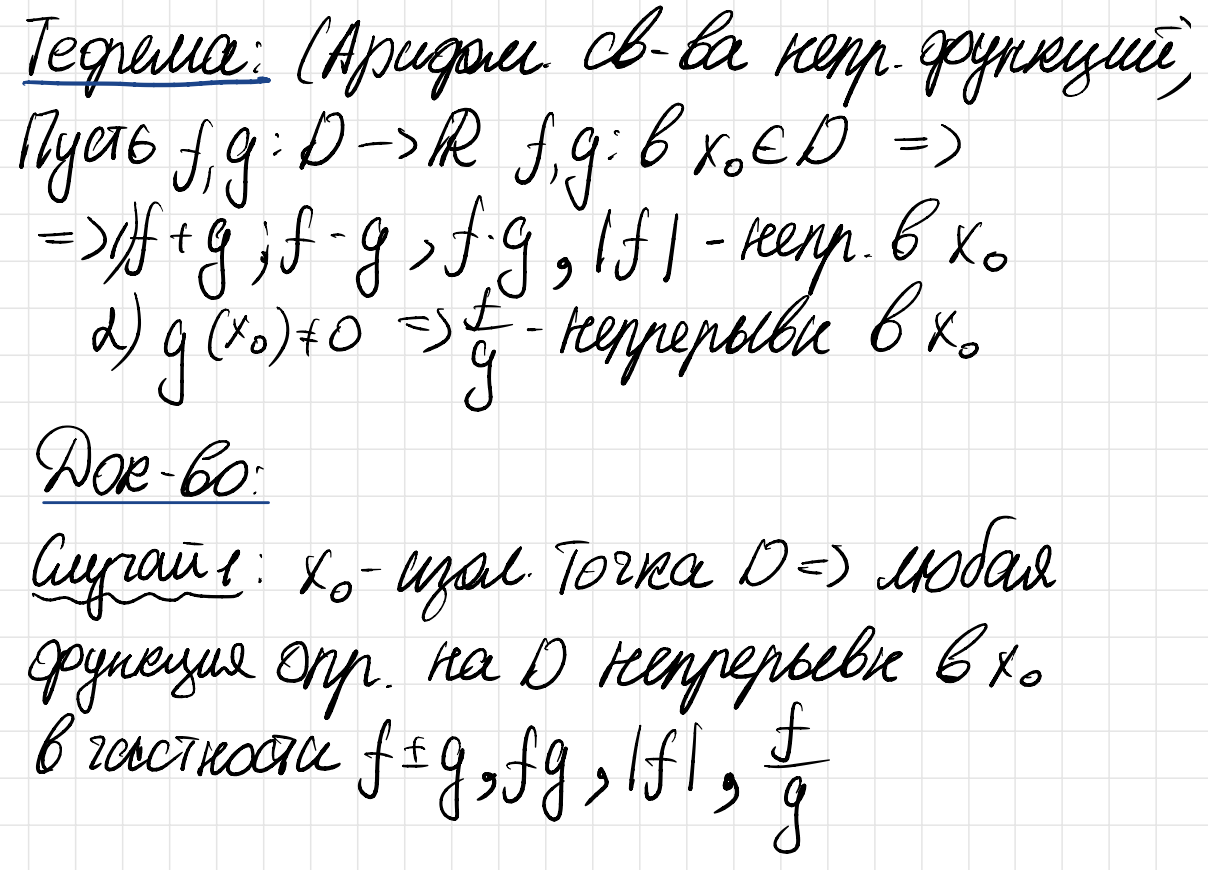 Теорема: (Арифм. св-ва непр. функций)
Пусть f,g : D -> ℝ f,g : в x₀ ∈ D =>
=> 1) f + g ; f - g , f · g , |f| - непр. в x₀
2) g (x₀) ≠ 0 => f/g - непрерывн в x₀
Док-во:
Случай 1: x₀ - изол. точка D => любая
функция опр. на D непрерывн в x₀
в частности f ± g , fg , |f| , f/g